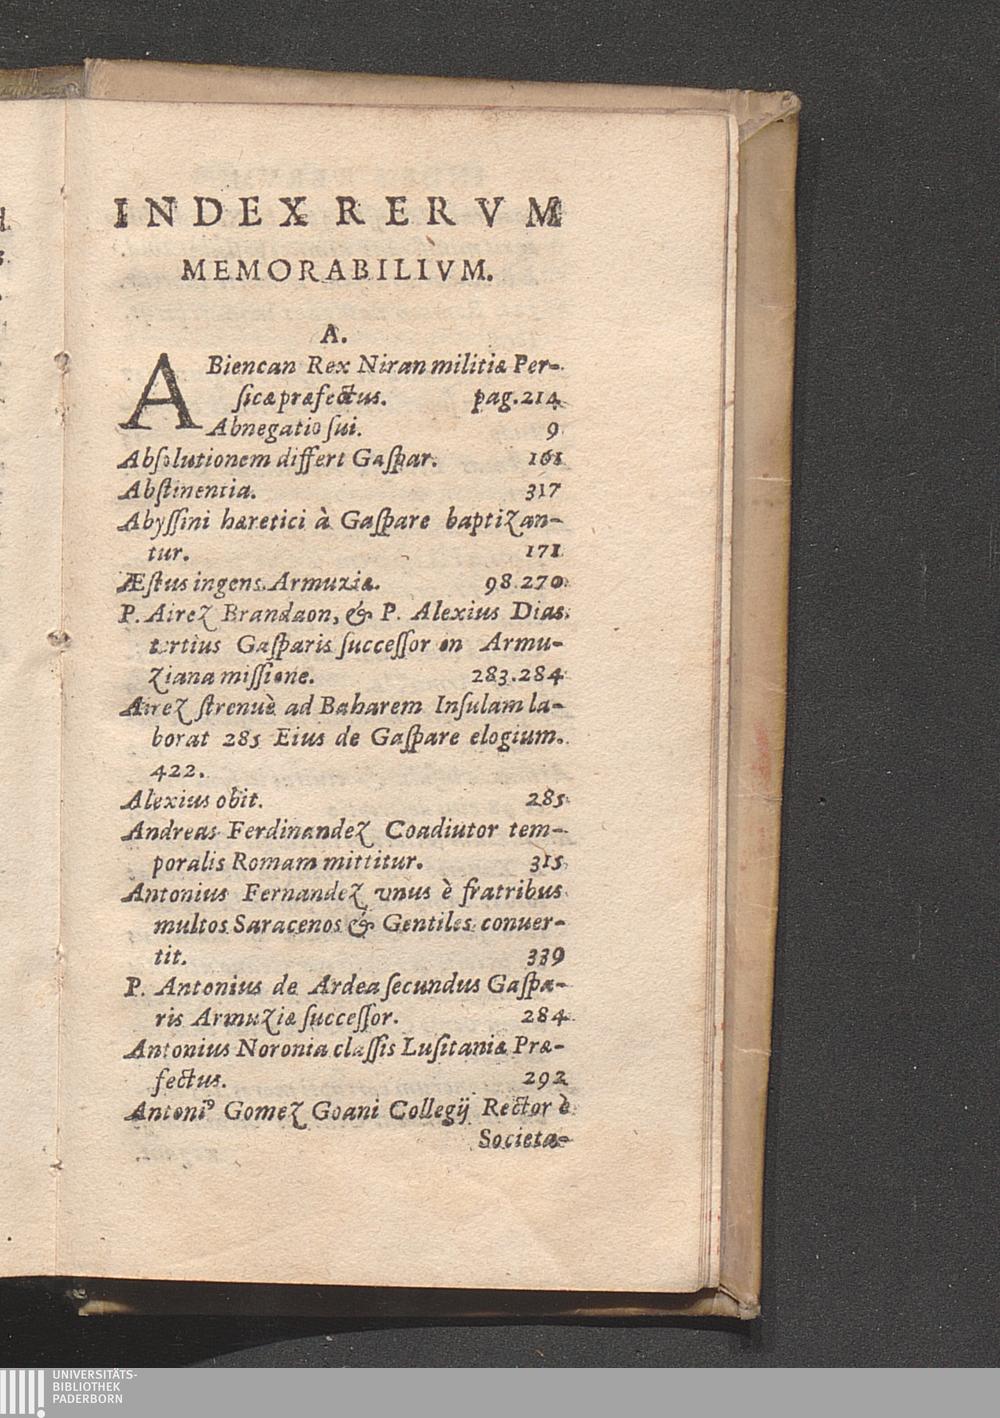 INDEX RERVM
MEMORABILIVM.
A.
ABiencan Rex Niran militiæ Per-
ſicæ præfectus. pag. 214
Abnegatio ſui. 9
Abſolutionem differt Gaſpar. 161
Abſtinentia. 317
Abyſſini hæretici à Gaſpare baptizan-
tur. 171
Æſtus ingens Armuziæ. 98.270
P. Airez Brandaon, & P. Alexius Dias
tertius Gaſparis ſucceſſor in Armu-
ziana miſſione. 283.284
Airez ſtrenuè ad Baharem Inſulam la-
borat 285 Eius de Gaſpare elogium.
422.
Alexius obit. 285
Andreas Ferdinandez Coadiutor tem-
poralis Romam mittitur. 315
Antonius Fernandez vnus è fratribus
multos Saracenos & Gentiles conuer-
tit. 339
P. Antonius de Ardea ſecundus Gaſpa-
ris Armuziæ ſucceſſor. 284
Antonius Noronia claſſis Luſitaniæ Præ-
fectus. 292
Antoniꝰ Gomez Goani Collegij Rector è
Societa-
UNIVERSITÄTS-
BIBLIOTHEK
PADERBORN